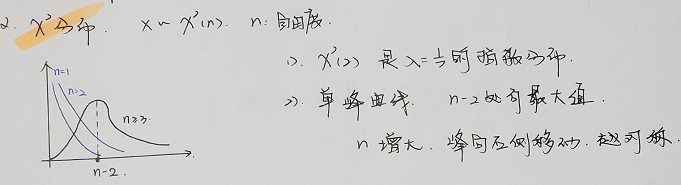 2. χ²分布. X ~ χ²(n). n: 自由度.
1). χ²(2) 是 λ=½ 的 指数分布.
2). 单峰曲线. n-2处有最大值.
n 增大. 峰向右侧移动. 越对称.
n=1
n=2
n≥3.
n-2.